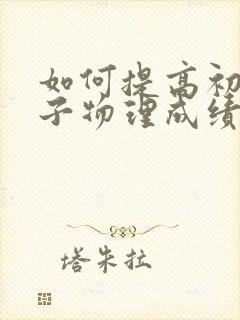 如何提高初
子物理成绩
塔朱拉